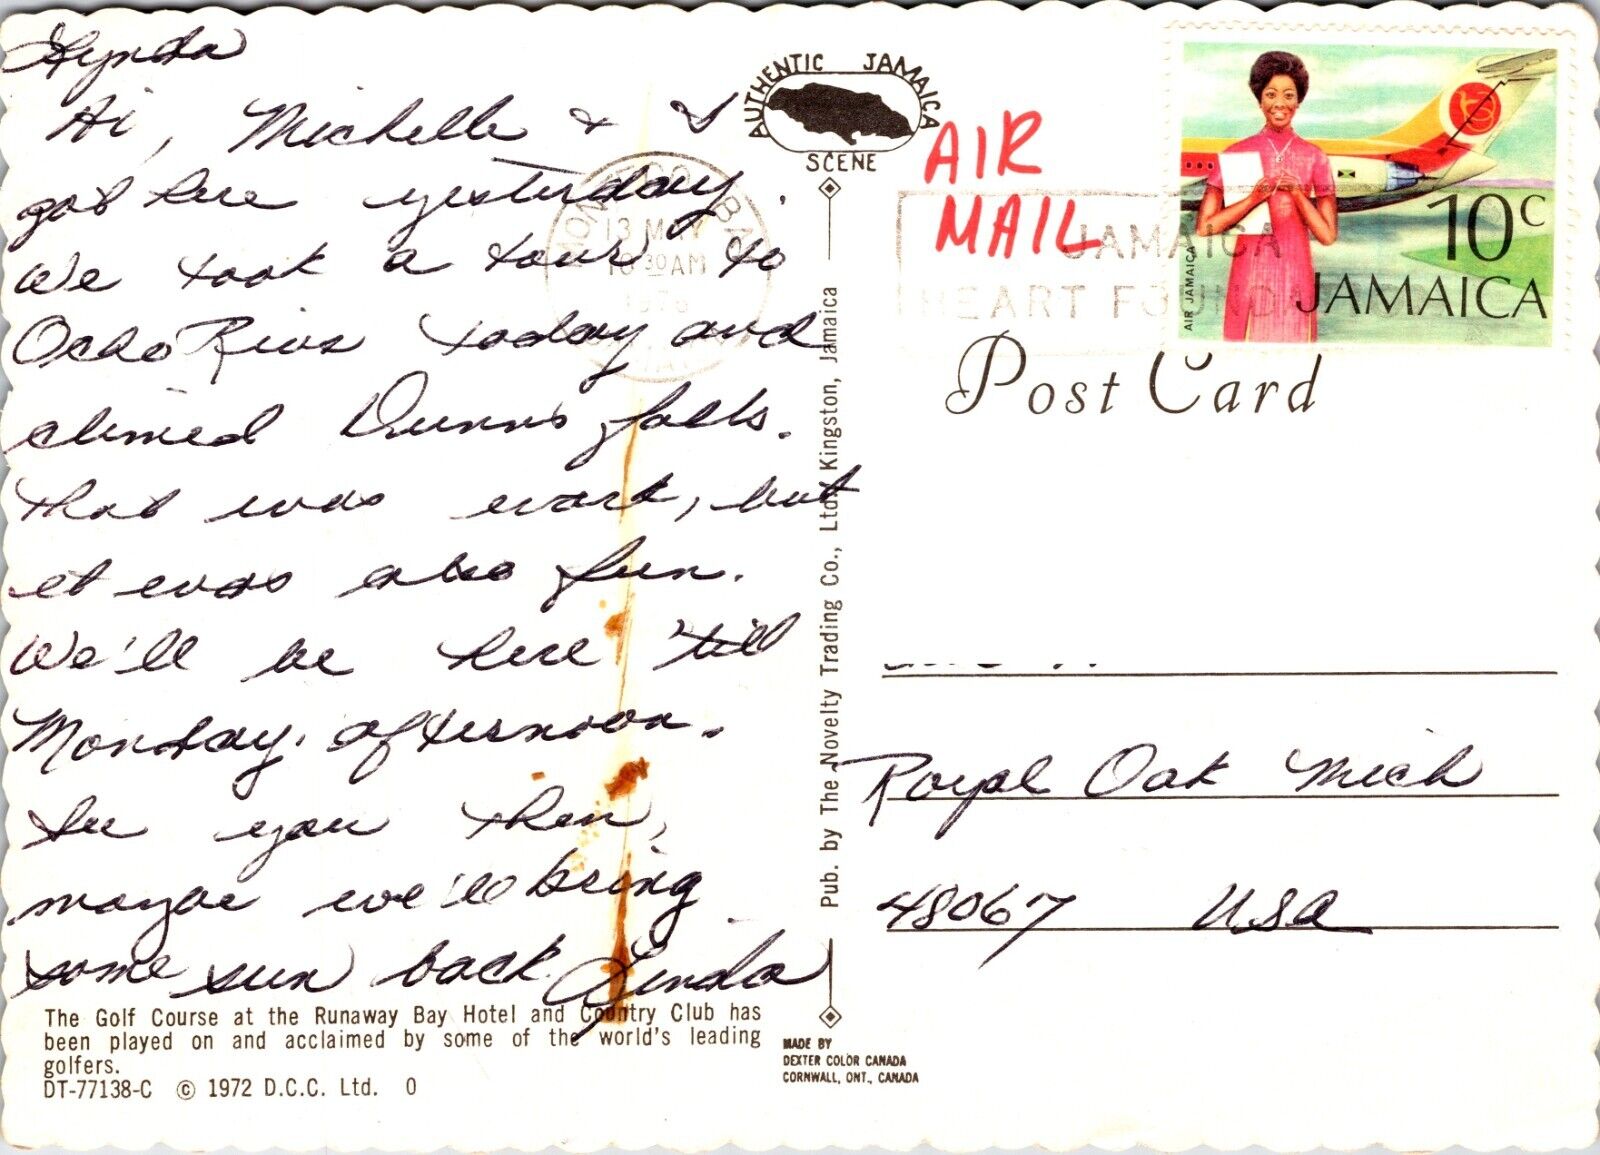 Lynda
Hi, Michelle & I
got here yesterday.
We took a tour to
Ocho Rios today and
climed Dunns falls.
That was work, but
it was also fun.
We'll be here 'till
Monday, afternoon.
See you then,
maybe we'll bring
some sun back. Lynda
The Golf Course at the Runaway Bay Hotel and Country Club has
been played on and acclaimed by some of the world's leading
golfers.
DT-77138-C © 1972 D.C.C. Ltd. O
AUTHENTIC JAMAICA
SCENE
Pub. by The Novelty Trading Co., Ltd. Kingston, Jamaica
MADE BY
DEXTER COLOR CANADA
CORNWALL, ONT., CANADA
AIR
MAIL
13 MAY
30 AM
JAMAICA
HEART
AIR JAMAICA
10c
JAMAICA
Post Card
Royal Oak Mich
48067 USA